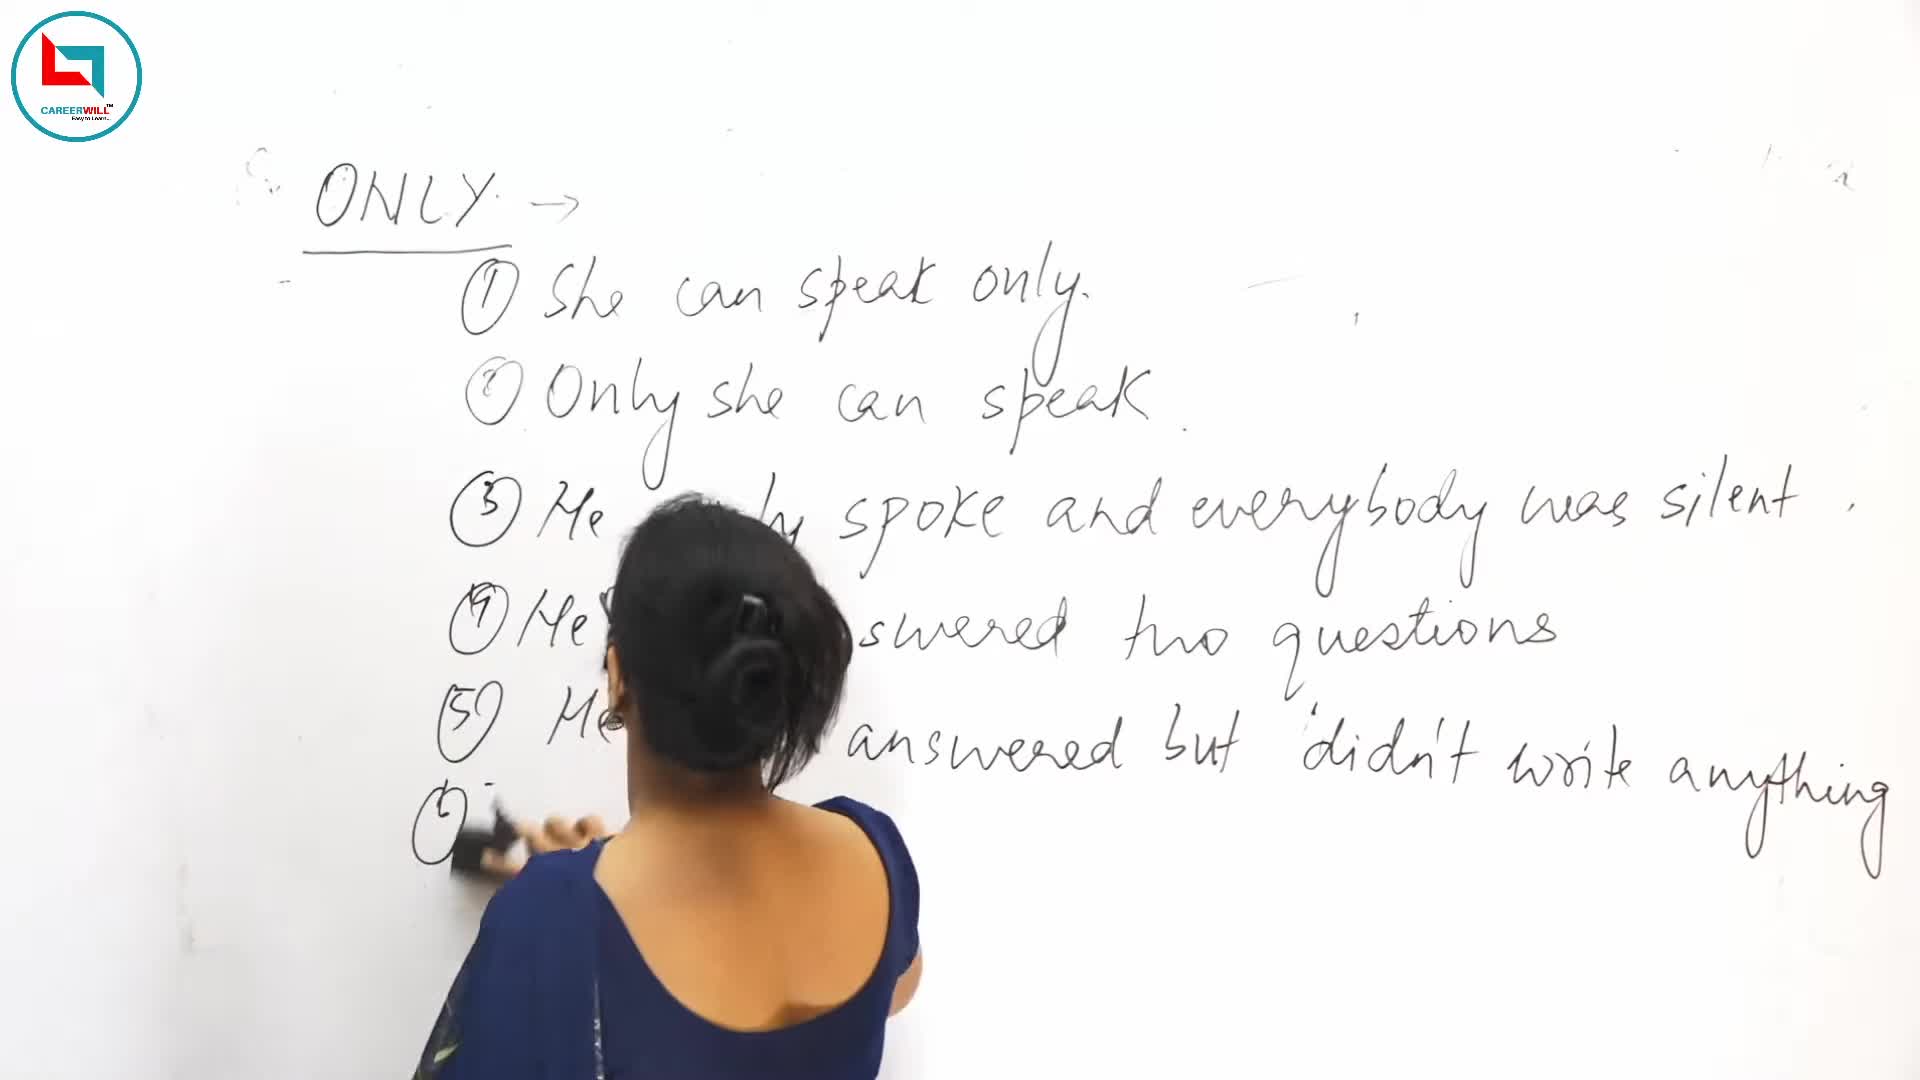 CAREERWILL™
Easy to Learn..
ONLY →
① She can speak only.
② Only she can speak.
③ He spoke and everybody was silent.
④ He two questions
⑤ He answered but didn't write anything
⑥